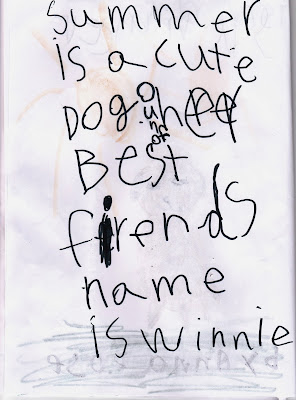 Summer
is a cute
Dog oune of her
Best
firends
name
is winnie